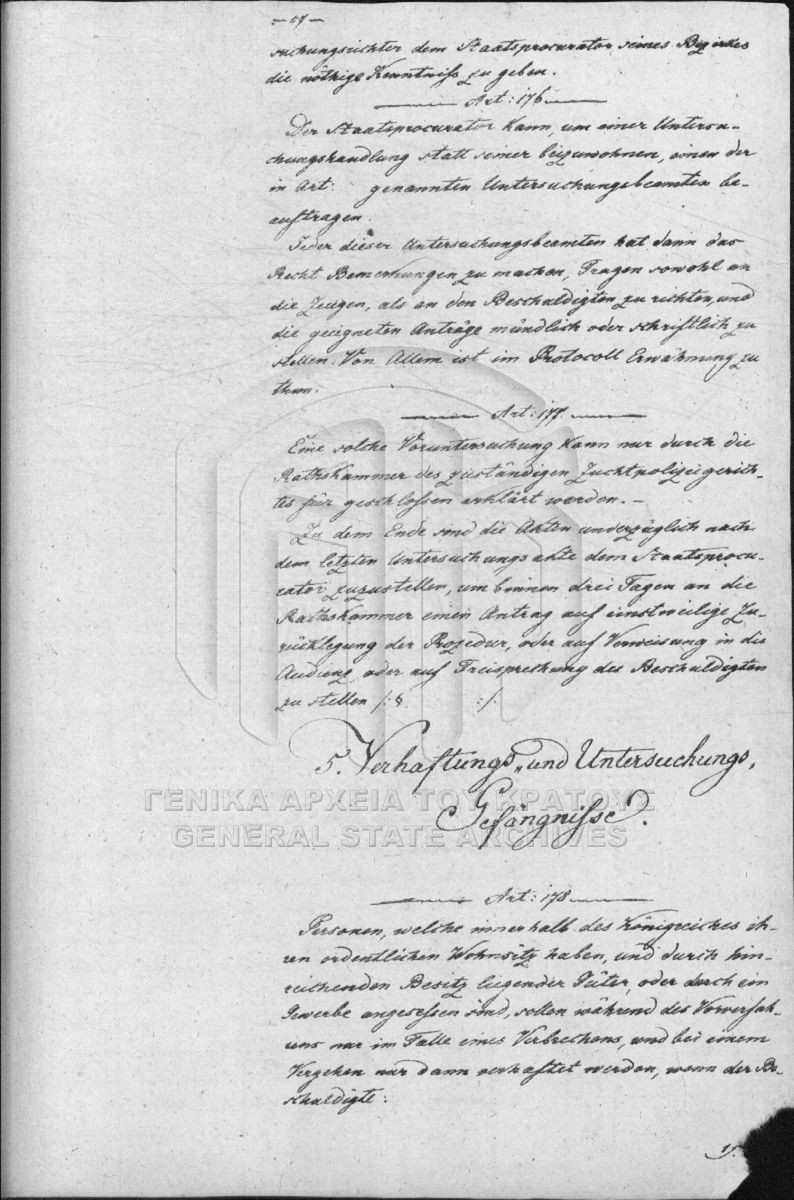 suchungsrichter dem Staatsprocurator seines Bezirkes
die nöthige Kenntniss zu geben.
Art: 176
Der Staatsprocurator kann, um einer Untersu-
chungshandlung statt seiner beizuwohnen, einen der
in Art: genannten Untersuchungsbeamten be-
auftragen.
Jeder dieser Untersuchungsbeamten hat dann das
Recht Bemerkungen zu machen, Fragen sowohl an
die Zeugen, als an den Beschuldigten zu richten, und
die geeigneten Anträge mündlich oder schriftlich zu
stellen. Von Allem ist im Protocoll Erwähnung zu
thun.
Art: 177.
Eine solche Voruntersuchung kann nur durch die
Rathskammer des zuständigen Zuchtpolizeigerich-
tes für geschlossen erklärt werden. –
Zu dem Ende sind die Akten unverzüglich nach
dem letzten Untersuchungsakte dem Staatsprocu-
rator zuzustellen, um binnen drei Tagen an die
Rathskammer einen Antrag auf einstweilige Zu-
rücklegung der Prozedur, oder auf Verweisung in die
Audienz, oder auf Freisprechung des Beschuldigten
zu stellen /: § :/.
5. Verhaftungs- und Untersuchungs-
Gefängnisse.
ΓΕΝΙΚΑ ΑΡΧΕΙΑ ΤΟΥ ΚΡΑΤΟΥΣ
GENERAL STATE ARCHIVES
Art: 178
Personen, welche innerhalb des Königreiches ih-
ren ordentlichen Wohnsitz haben, und durch hin-
reichenden Besitz liegender Güter, oder durch ein
Gewerbe angesessen sind, sollen während des Vorverfah-
rens nur im Falle eines Verbrechens, und bei einem
Vergehen nur dann verhaftet werden, wenn der Be-
schuldigte: